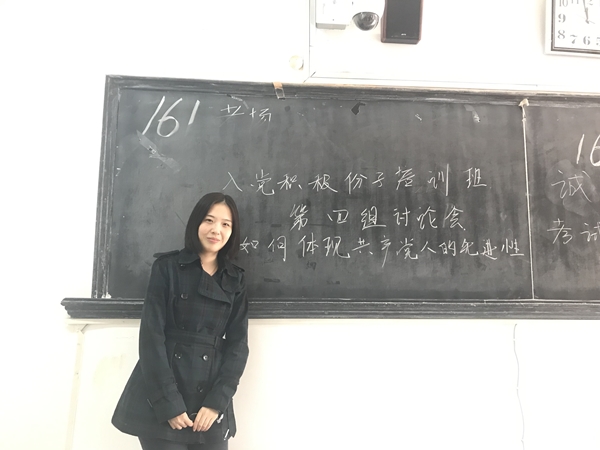 161
立场
入党积极份子培训班
第四组讨论会
如何体现共产党人的先进性
16
诚
考试
10
9
8
7
6
5